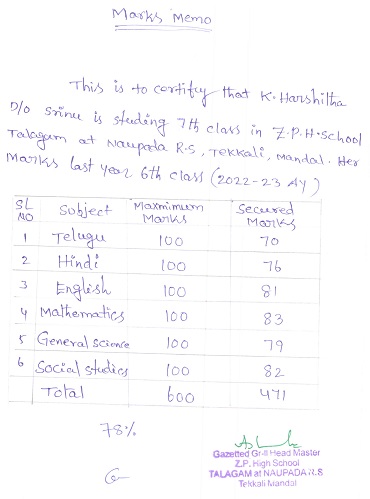 Marks Memo
This is to certify that K. Harshitha
D/o Srinu is studing 7th class in Z.P.H.School
Talagam at Naupada R.S, Tekkali, Mandal. Her
Marks last year 6th class (2022-23 AY)
SL NO Subject Maxmimum Marks Secured Marks
1 Telugu 100 70
2 Hindi 100 76
3 English 100 81
4 Mathematics 100 83
5 General science 100 79
6 Social studies 100 82
Total 600 471
78%
Gazetted Gr-II Head Master
Z.P. High School
TALAGAM at NAUPADA R.S
Tekkali Mandal